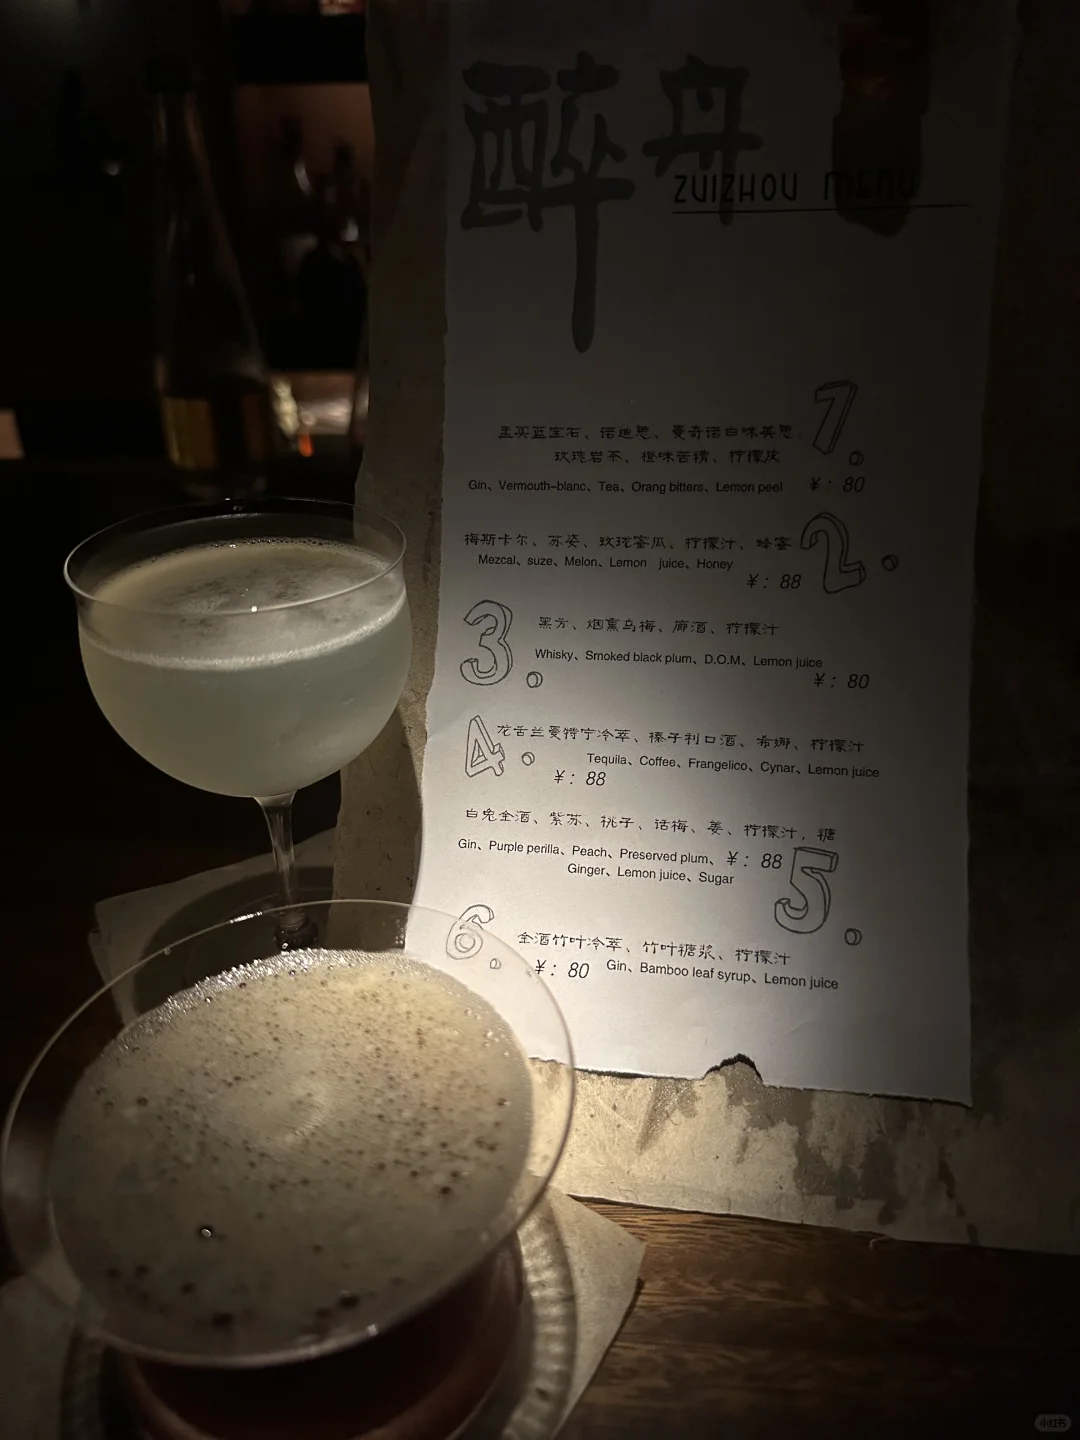 醉舟
ZUIZHOU MENU
1.
孟买蓝宝石、诺地思、曼奇诺白味美思、
玫珑岩茶、橙味苦精、柠檬皮
Gin、Vermouth-blanc、Tea、Orang bitters、Lemon peel
¥：80
2.
梅斯卡尔、苏姿、玫珑蜜瓜、柠檬汁、蜂蜜
Mezcal、suze、Melon、Lemon juice、Honey
¥：88
3.
黑方、烟熏乌梅、廊酒、柠檬汁
Whisky、Smoked black plum、D.O.M、Lemon juice
¥：80
4.
龙舌兰曼特宁冷萃、榛子利口酒、希娜、柠檬汁
Tequila、Coffee、Frangelico、Cynar、Lemon juice
¥：88
白兔金酒、紫苏、桃子、话梅、姜、柠檬汁，糖
Gin、Purple perilla、Peach、Preserved plum、
Ginger、Lemon juice、Sugar
¥：88
5.
6.
金酒竹叶冷萃、竹叶糖浆、柠檬汁
¥：80
Gin、Bamboo leaf syrup、Lemon juice
小红书